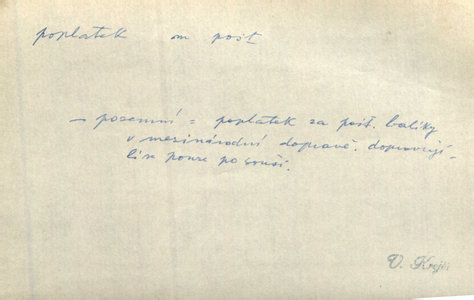 poplatek m pošt
– pozemní = poplatek za pošt. balíky
v mezinárodní dopravě, dopravují-
li se pouze po souši.
V. Krejčí